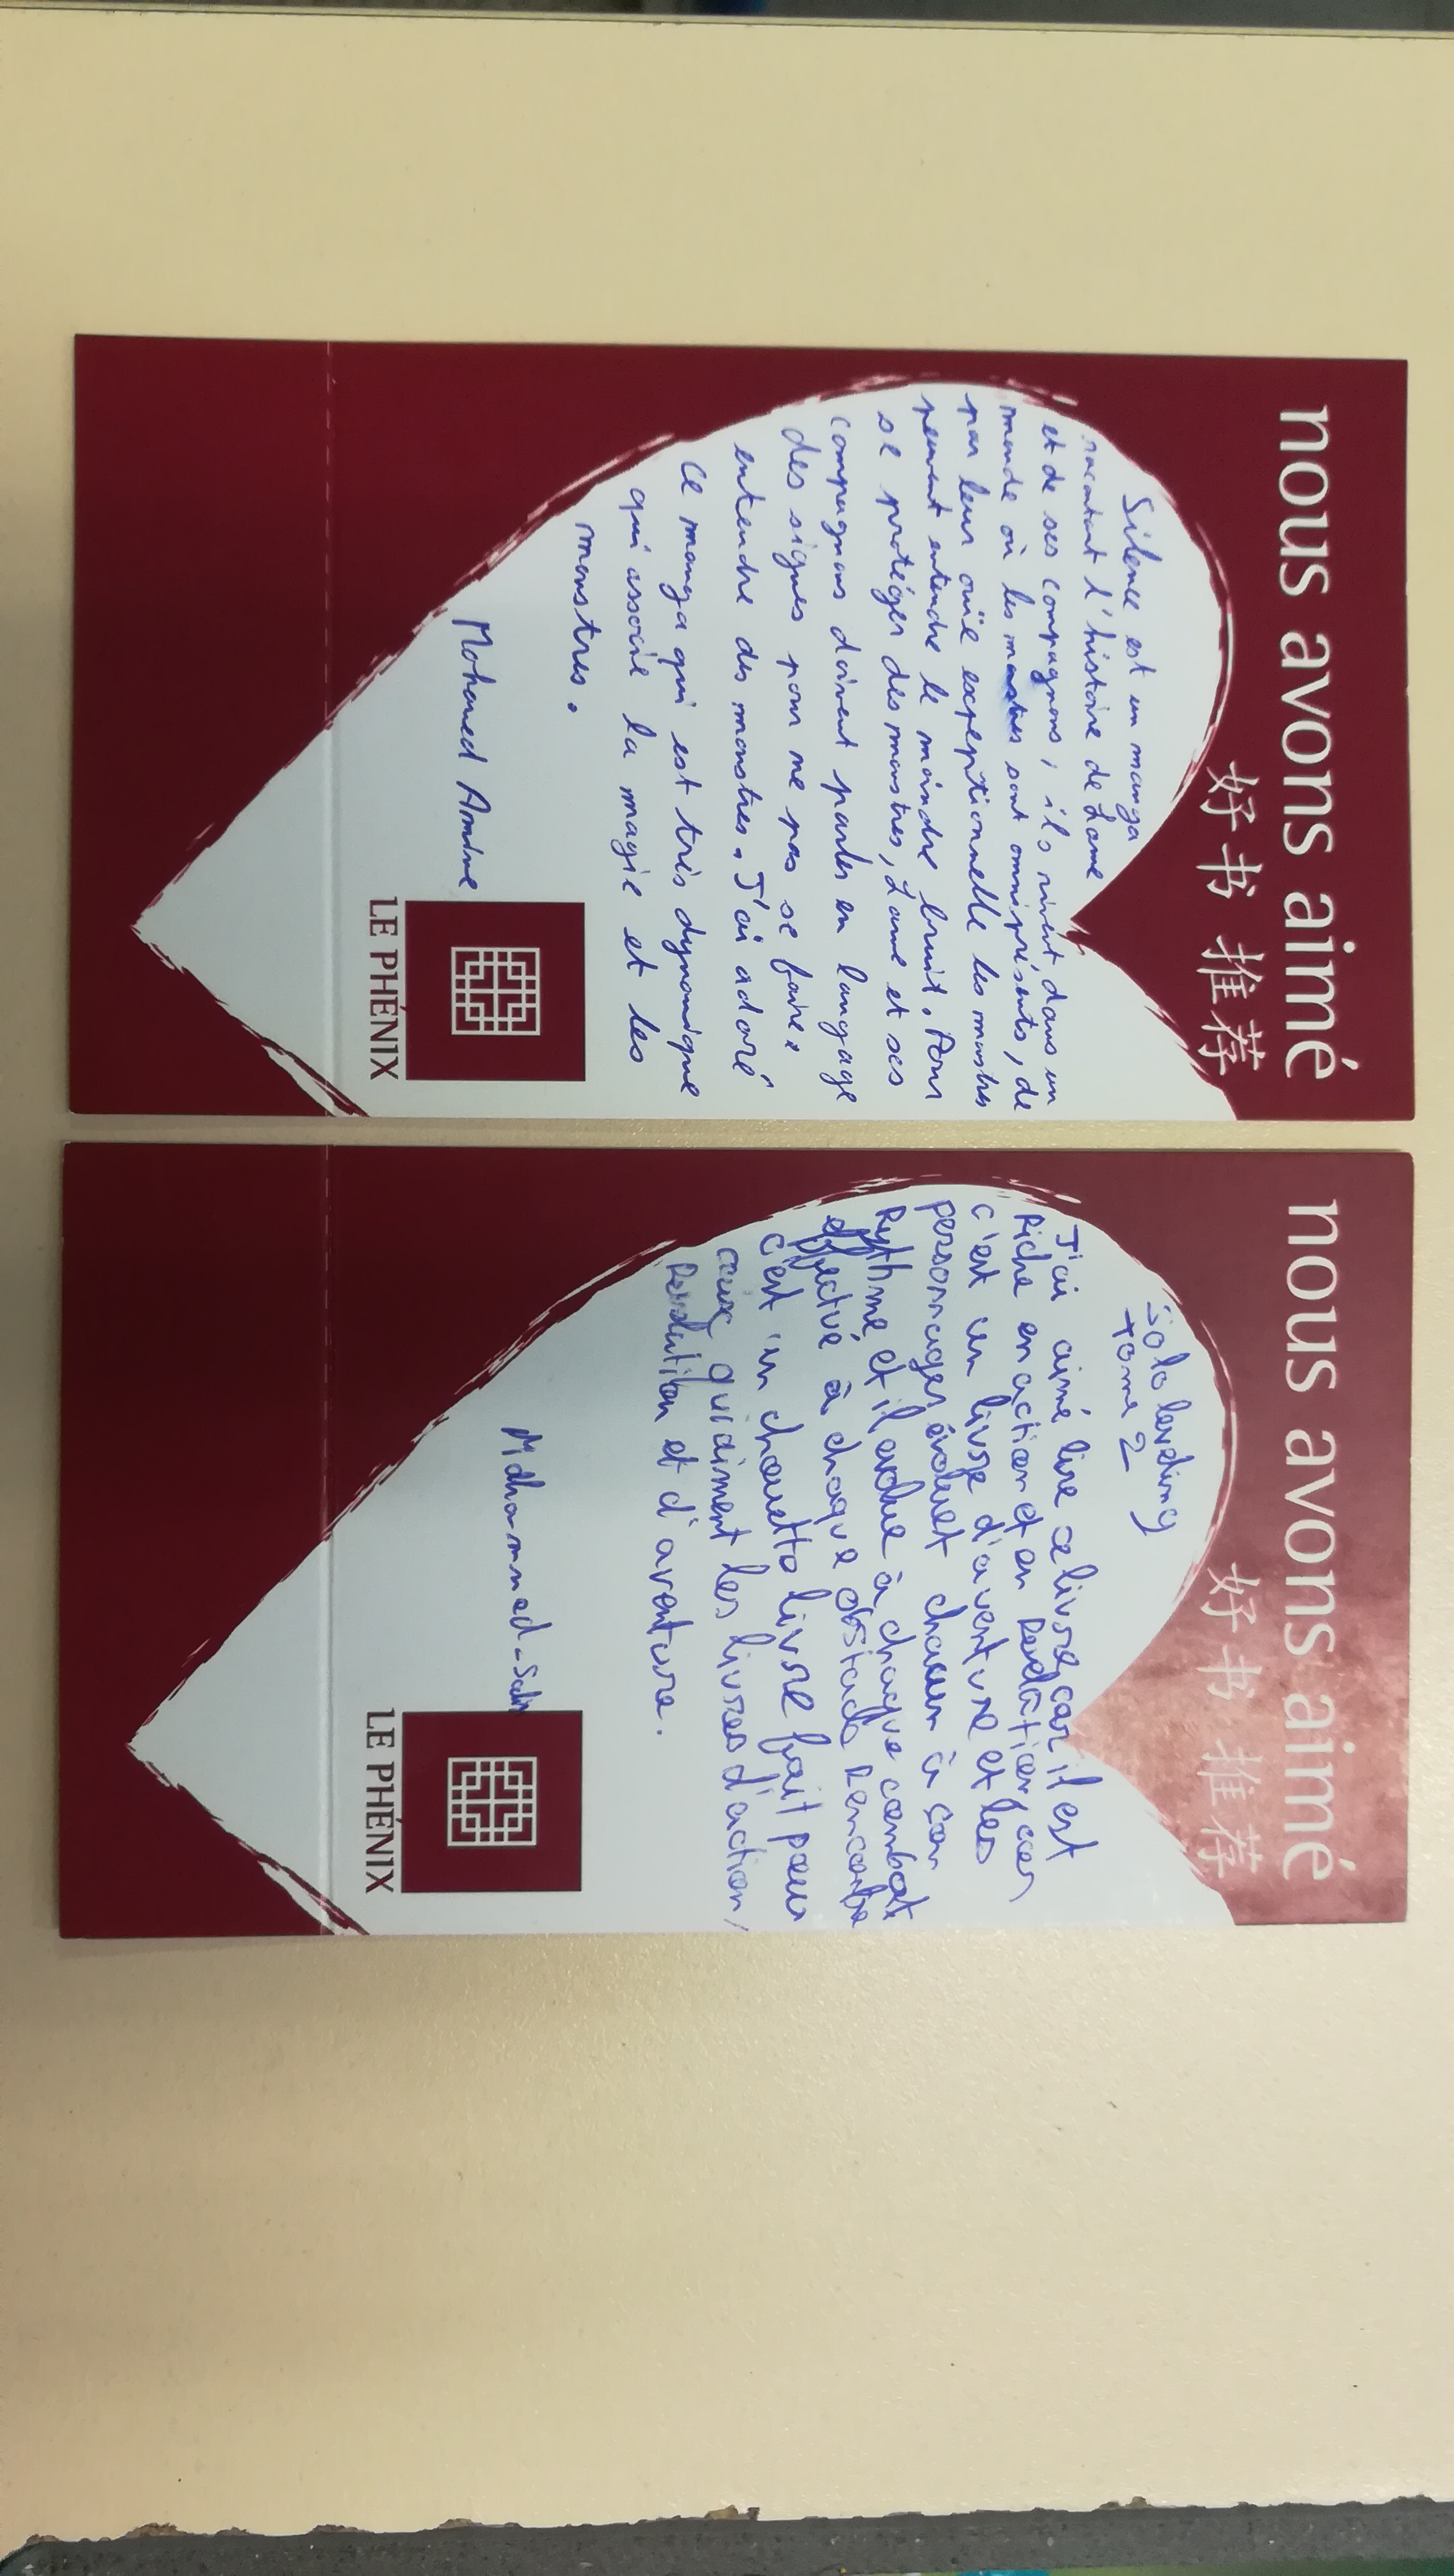 nous avons aimé
好书 推荐
Silence est un manga
racontant l'histoire de Lame
et de ses compagnons, ils vivent, dans un
monde où les monstres sont omniprésents, de
par leur ouïe expeptionnelle les monstres
peuvent entendre le moindre bruit. Pour
se protéger des monstres, Lame et ses
compagnons doivent parler en langage
des signes pour ne pas se faire
entendre des monstres. J'ai adoré
ce manga qui est très dynamique
qui associe la magie et les
monstres.
Mohamed Amine
LE PHÉNIX
nous avons aimé
好书 推荐
Solo leveling
tome 2
J'ai aimé lire ce livre, car il est
Riche en action et en Révélation, car
c'est un livre d'aventure et les
personnages évoluet chacun à son
Rythme et il evolue à chaque combat
effectué à chaque obstacle Rencontre
c'est un chouette livre fait pour
ceux qui aiment les livres d'action,
et d'aventure.
LE PHÉNIX